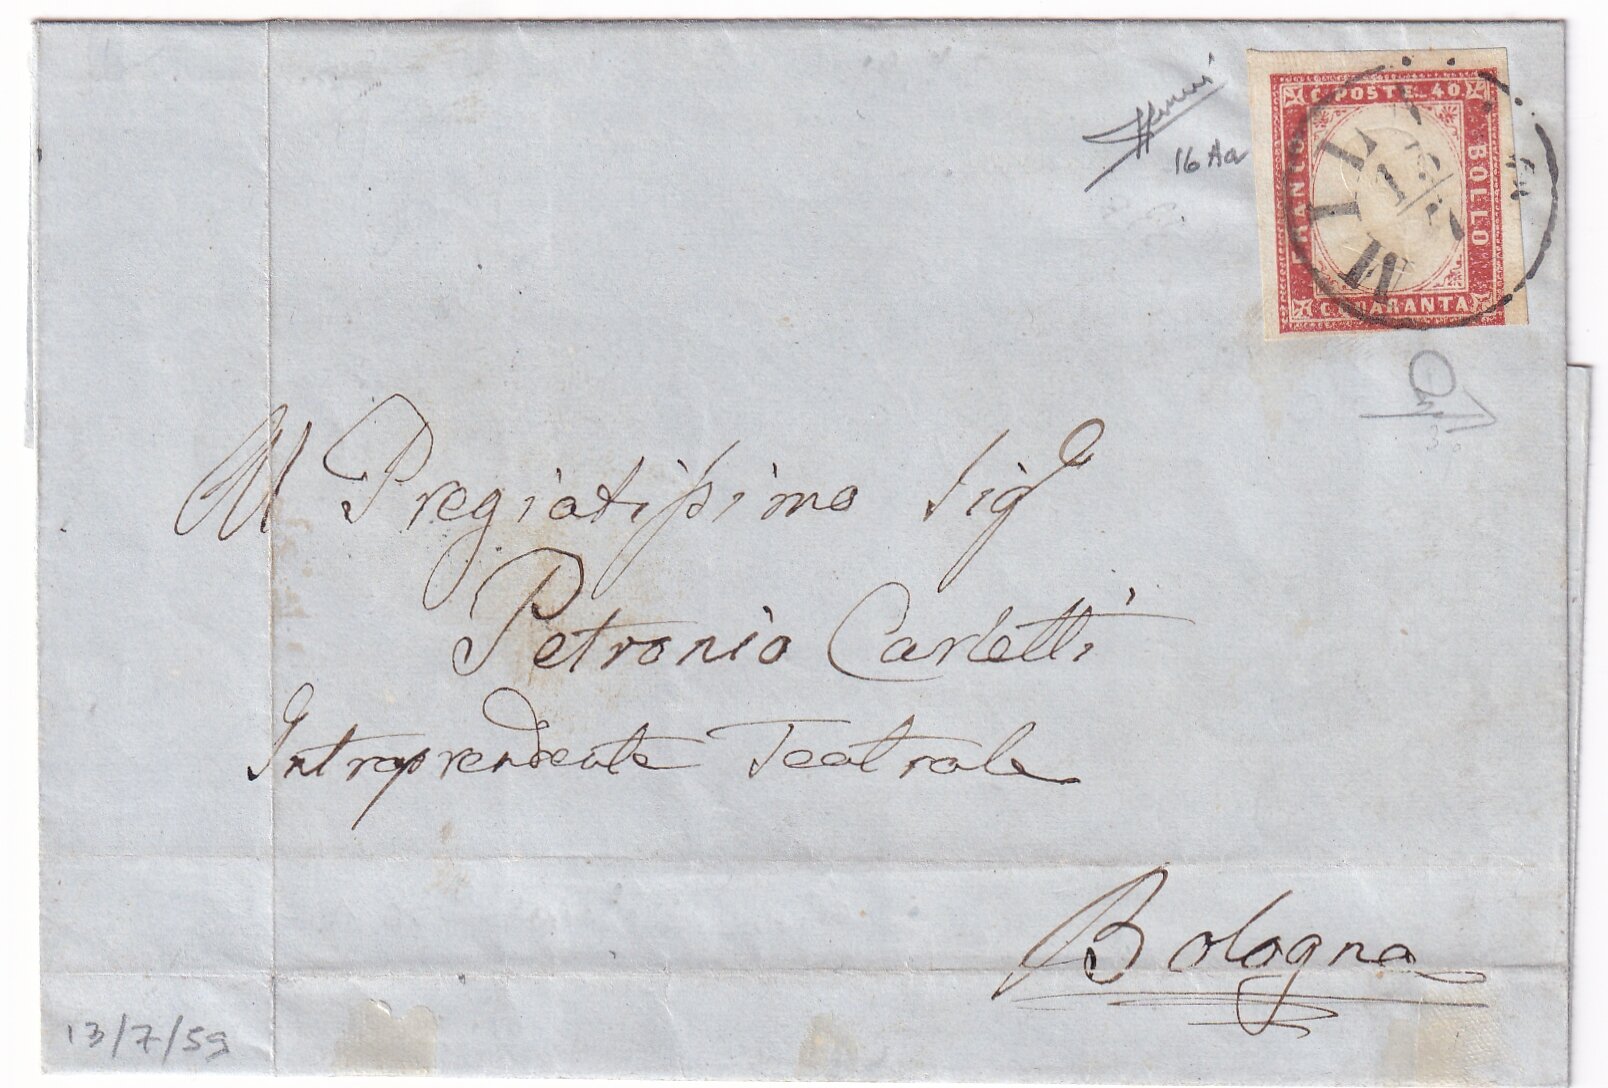 C. POSTE. 40.
FRANCO
BOLLO
C. QUARANTA
MIL
13/7
16 Aa
Al Pregiatissimo Sigr
Petronio Carletti
Intraprendente Teatrale
Bologna
13/7/59